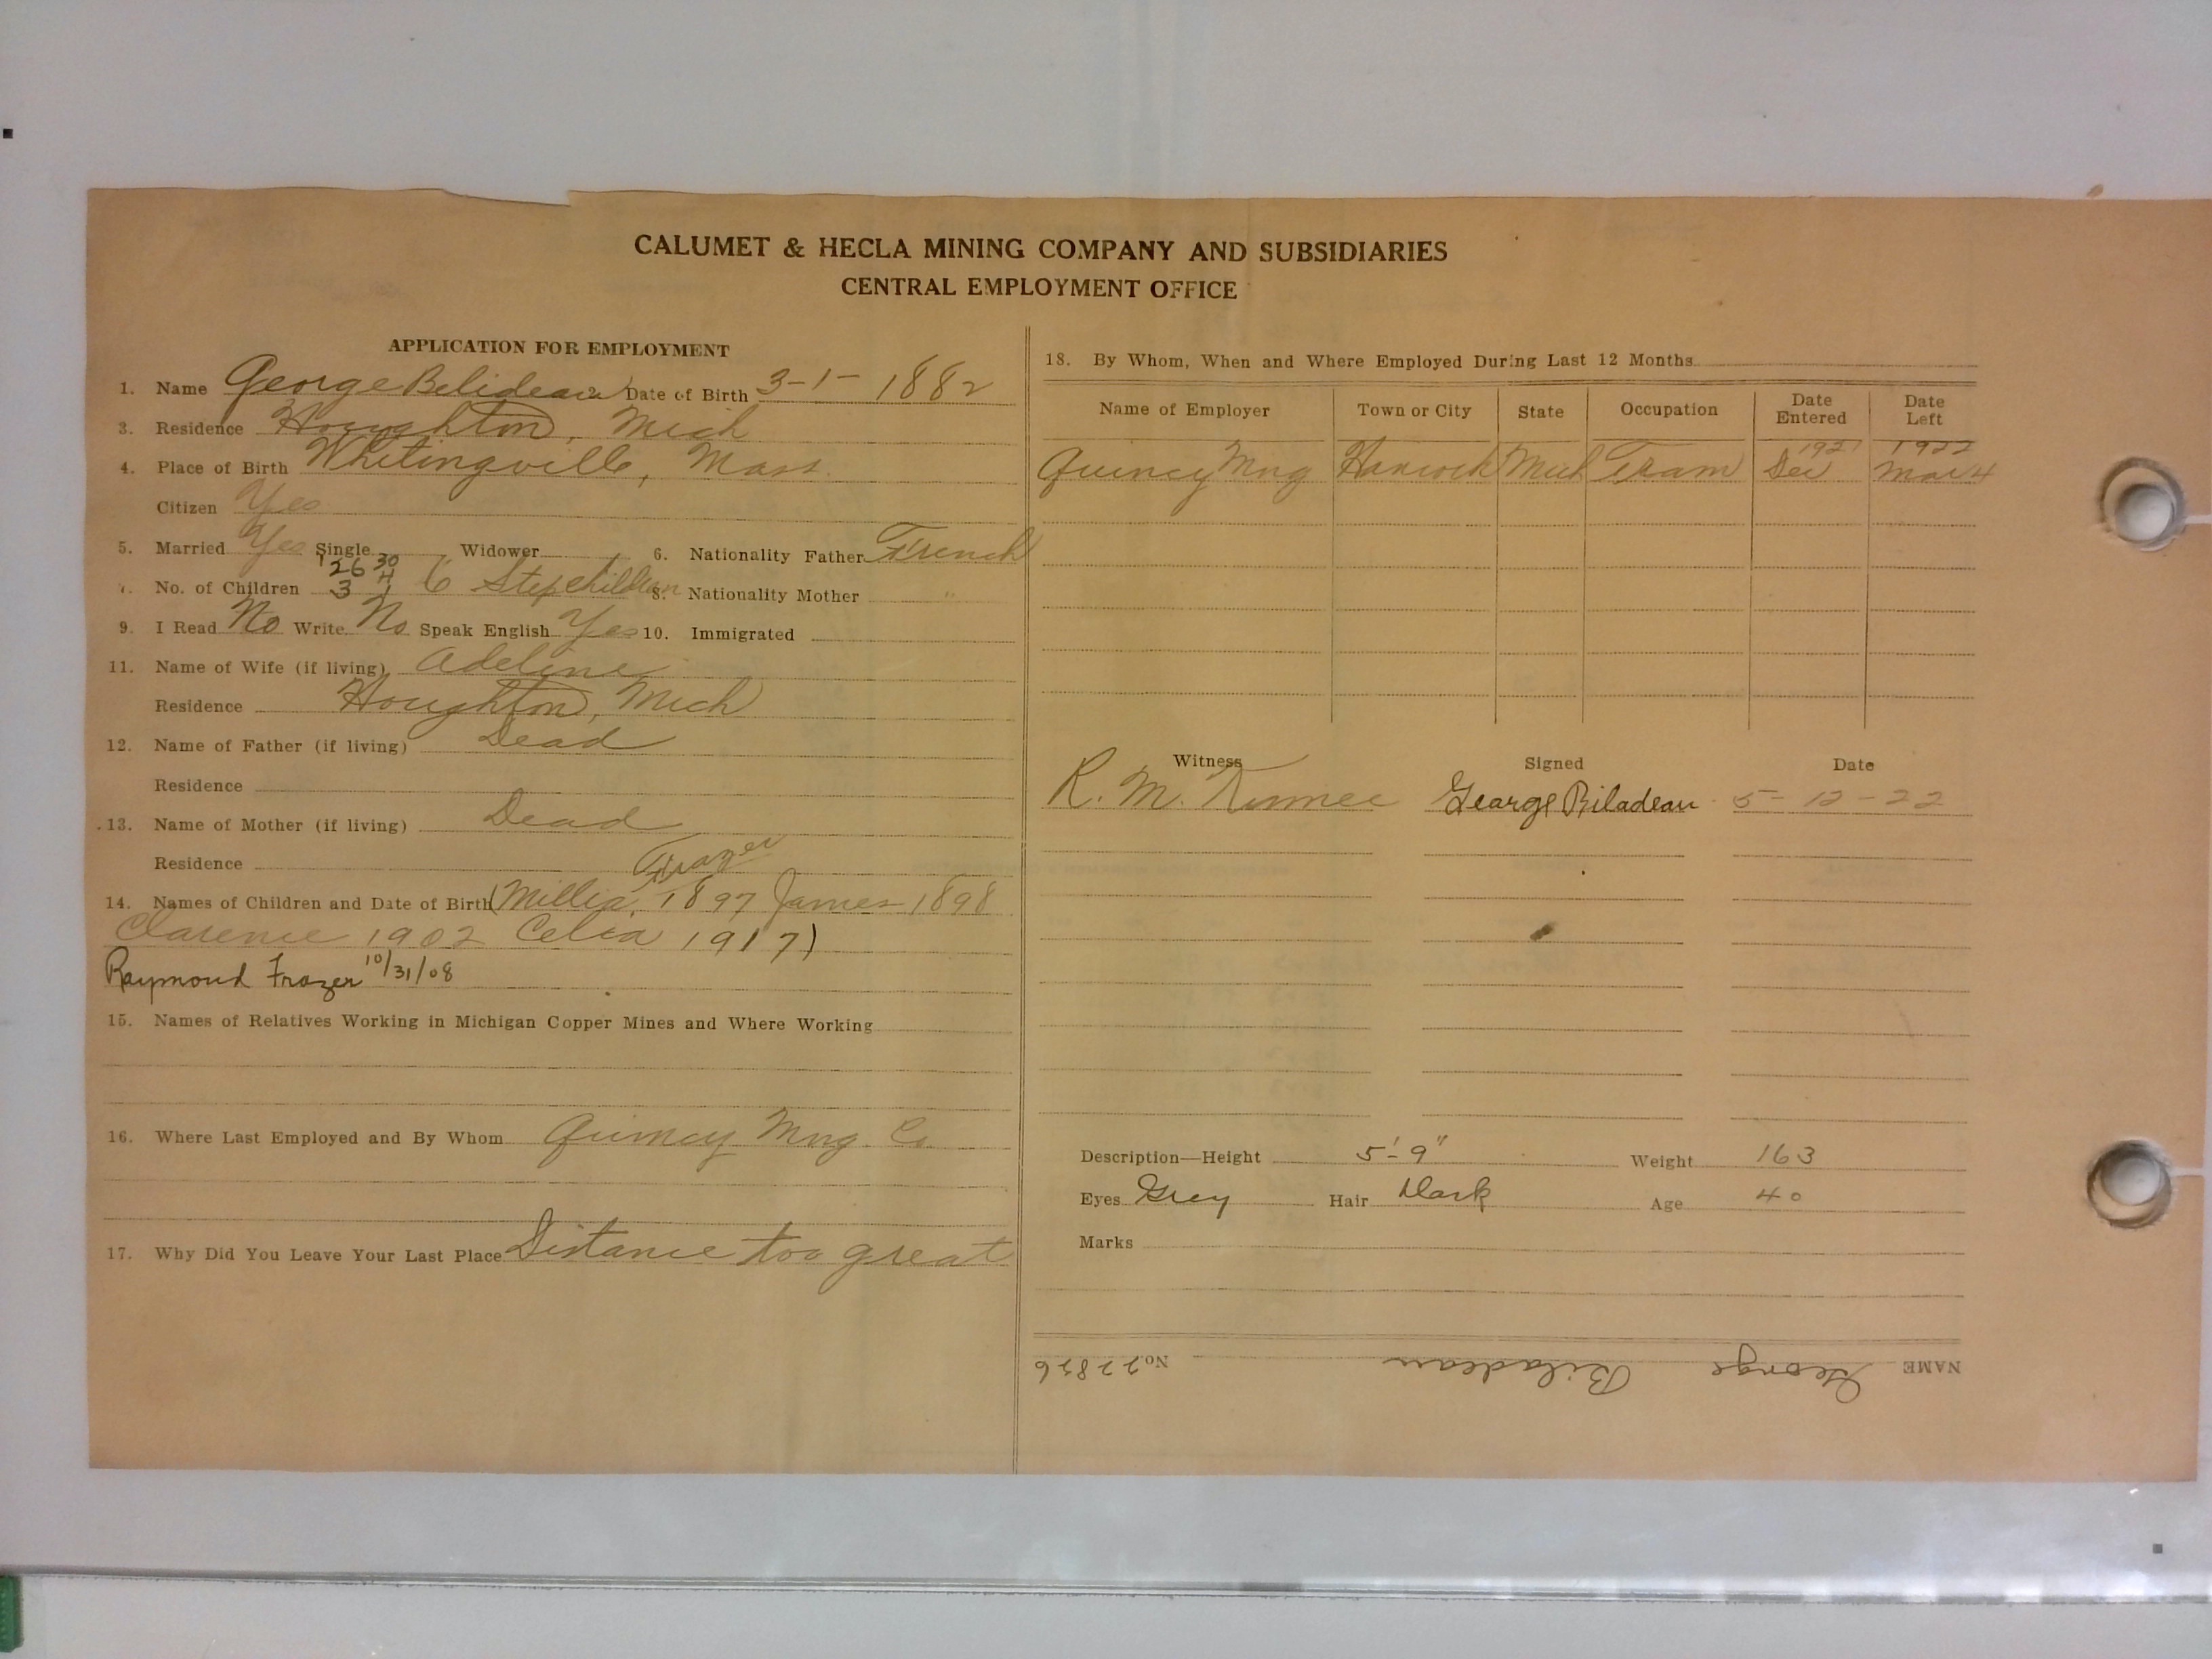 CALUMET & HECLA MINING COMPANY AND SUBSIDIARIES
CENTRAL EMPLOYMENT OFFICE
APPLICATION FOR EMPLOYMENT
1. Name George Belideau Date of Birth 3-1-1882
3. Residence Houghton, Mich
4. Place of Birth Whitingville, Mass.
Citizen Yes
5. Married Yes Single Widower 6. Nationality Father French
26 30
7. No. of Children 3 4 6 Stepchildren 8. Nationality Mother "
9. I Read No Write No Speak English Yes 10. Immigrated
11. Name of Wife (if living) Adeline
Residence Houghton, Mich
12. Name of Father (if living) Dead
Residence
13. Name of Mother (if living) Dead
Residence
Frazer
14. Names of Children and Date of Birth (Millia, 1897 James 1898
Clarence 1902 Celia 1917)
Raymond Frazer 10/31/08
15. Names of Relatives Working in Michigan Copper Mines and Where Working
16. Where Last Employed and By Whom Quincy Mng. Co.
17. Why Did You Leave Your Last Place Distance too great
18. By Whom, When and Where Employed During Last 12 Months
Name of Employer Town or City State Occupation Date Entered Date Left
1921 1922
Quincy Mng Hancock Mich Tram Dec Mar 4
Witness Signed Date
R. M. George Biladeau 5-12-22
Description—Height 5'-9" Weight 163
Eyes Grey Hair Dark Age 40
Marks
NAME George Biladeau No. 22826